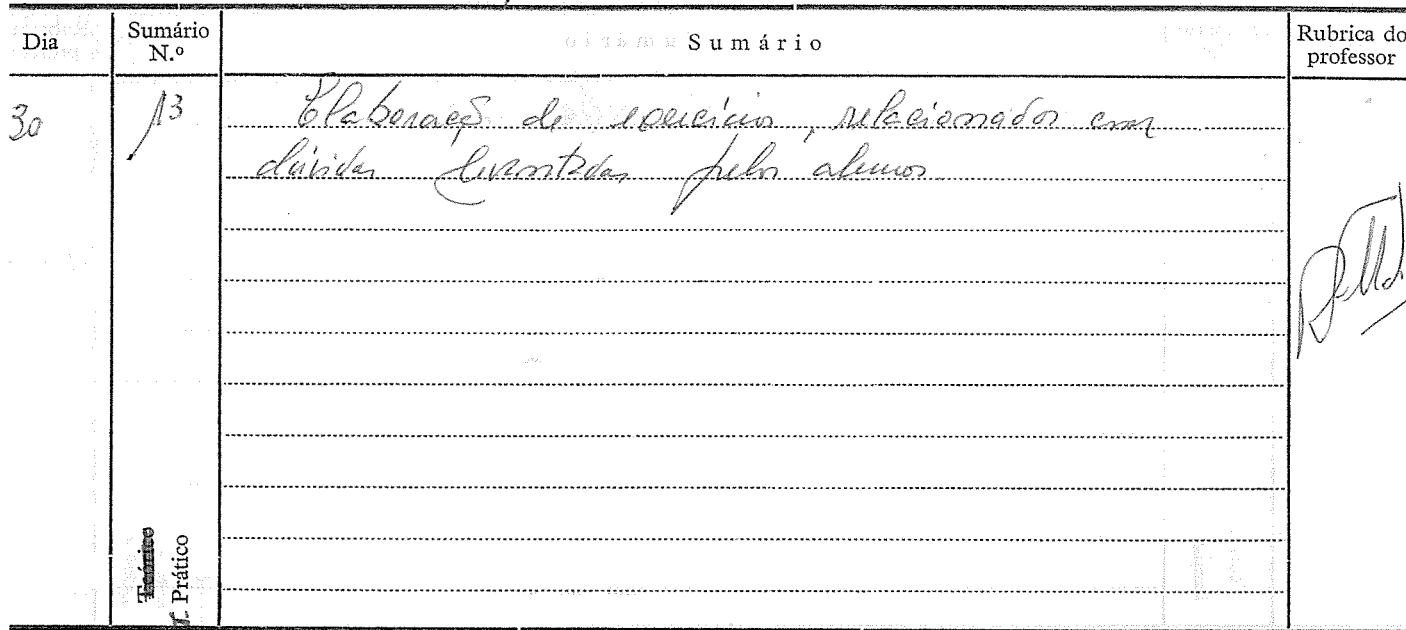 Dia
Sumário
N.º
Sumário
Rubrica do
professor
30
13
Elaboração de exercícios, relacionados com
dúvidas levantadas pelos alunos
Teórico
Prático